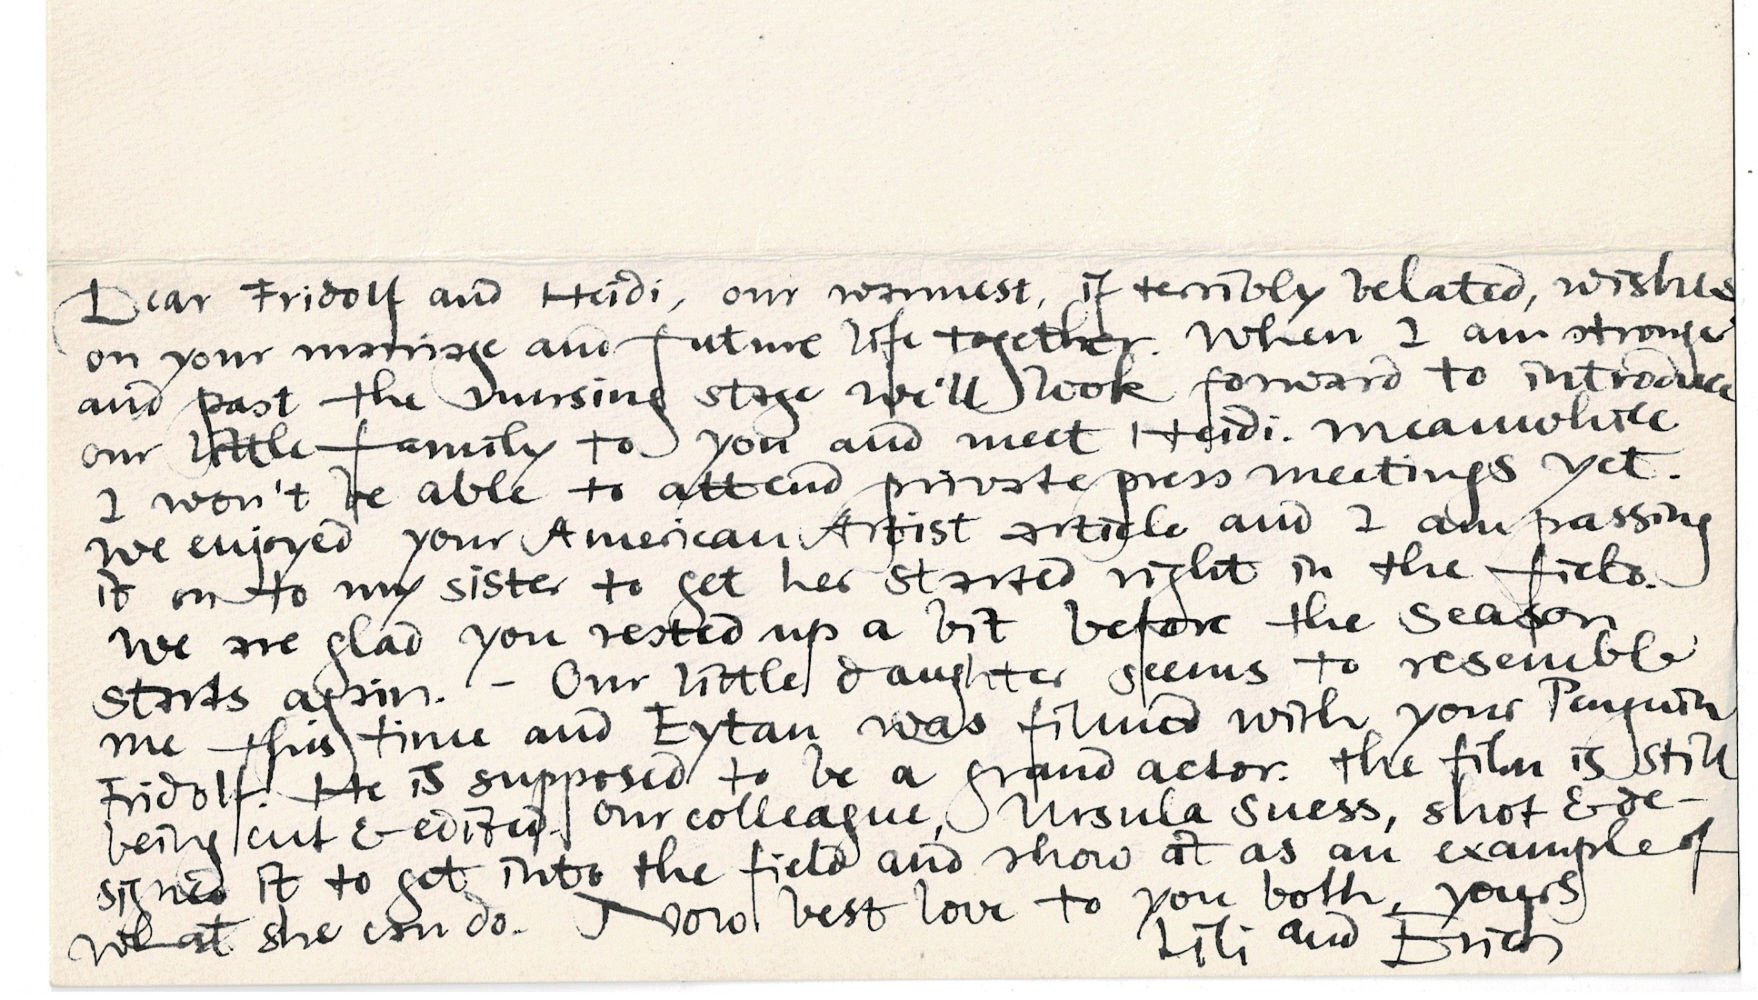 Dear Fridolf and Heidi, our warmest, if terribly belated, wishes
on your marriage and future life together. When I am stronger
and past the nursing stage we'll look forward to introduce
our little family to you and meet Heidi. Meanwhile
I won't be able to attend private press meetings yet.
We enjoyed your American Artist article and I am passing
it on to my sister to get her started right in the field.
We are glad you rested up a bit before the season
starts again. - Our little daughter seems to resemble
me this time and Eytan was filmed with your Penguin
Fridolf. He is supposed to be a grand actor. The film is still
being cut & edited. Our colleague, Ursula Suess, shot & de-
signed it to get into the field and show it as an example of
what she can do. Now best love to you both, yours
Lili and Erich